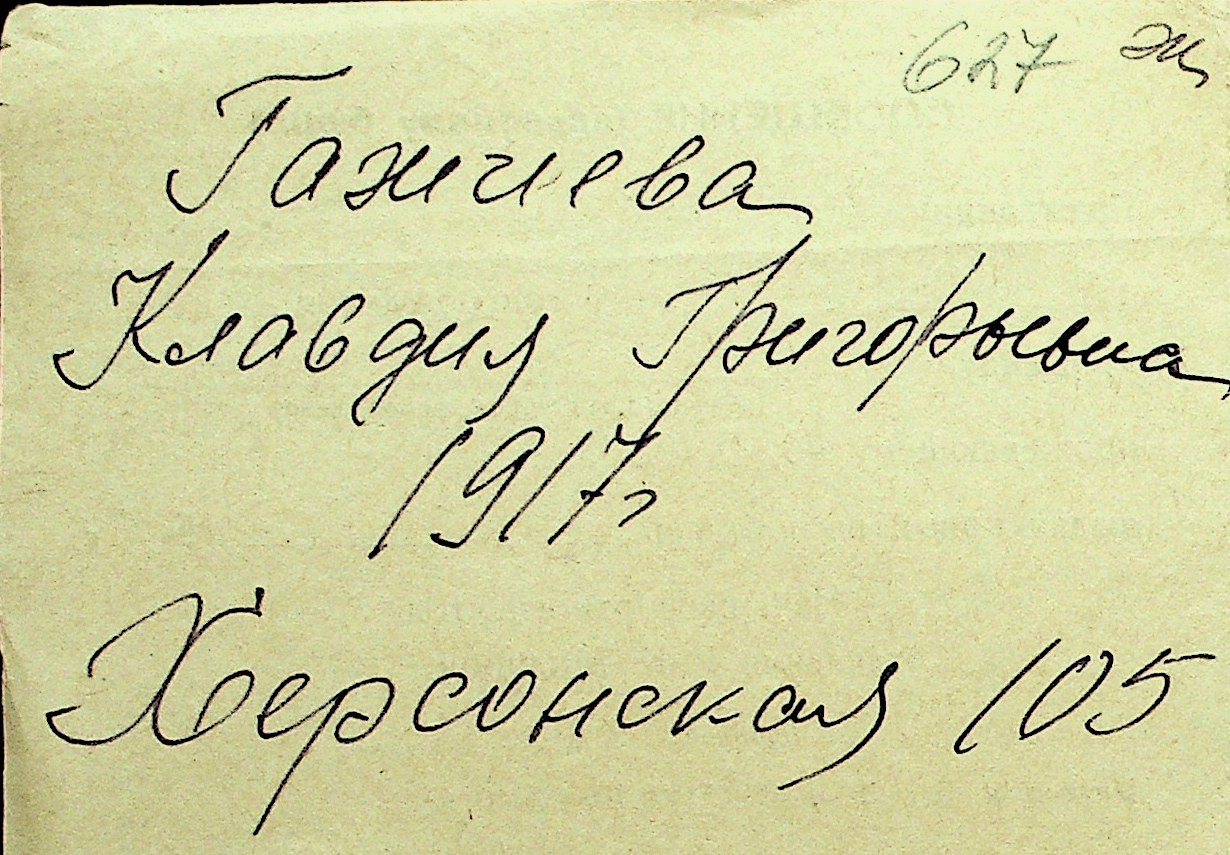 627 ж
Клавдия Григорьевна
1917г
Херсонская 105